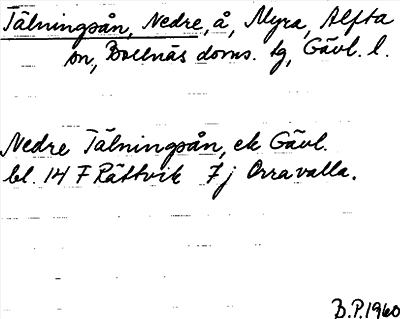 Tälningsån, Nedre, å, Myra, Alfta
sn, Bollnäs doms. tg, Gävl. l.
Nedre Tälningsån, ek Gävl.
bl. 14 F Rättvik 7 j Orravalla.
B.P. 1960